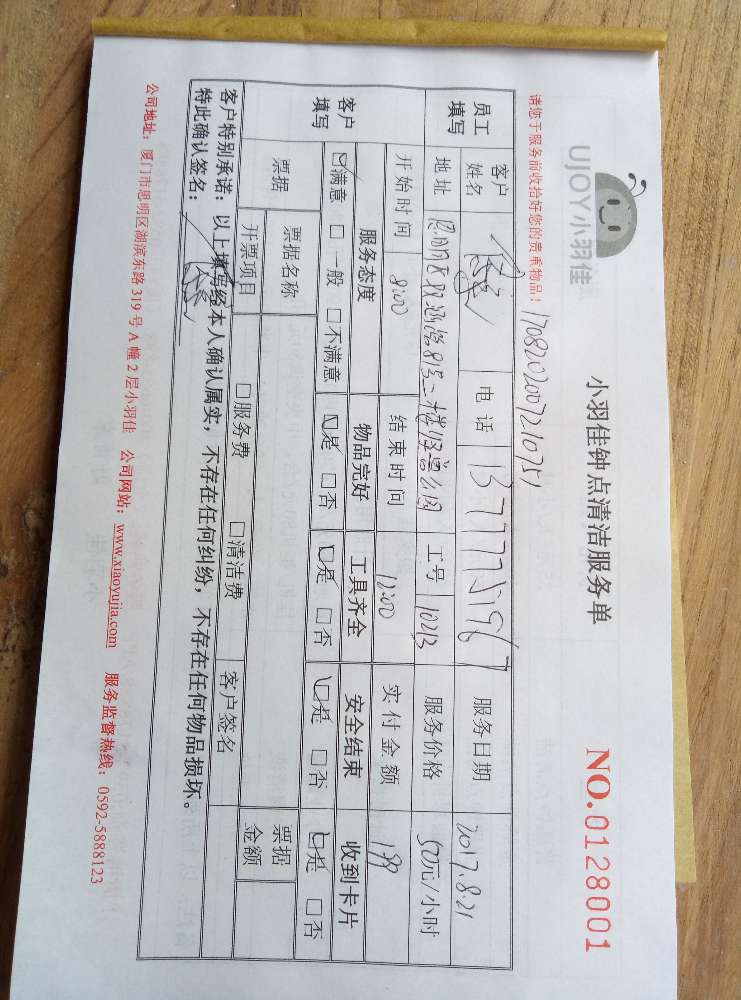 UJOY小羽佳
小羽佳钟点清洁服务单
NO.0128001
请您于服务前收拾好您的贵重物品！
1708202007210751
员工填写
客户姓名
电话
服务日期 2017.8.21
地址
工号 10213
服务价格 50元/小时
开始时间 8:00
结束时间 12:00
实付金额 199
客户填写
服务态度 物品完好 工具齐全 安全结束 收到卡片
☑满意 □一般 □不满意 ☑是 □否 ☑是 □否 ☑是 □否 ☑是 □否
票据
票据名称
票据金额
开票项目 □服务费 □清洁费 客户签名
客户特别承诺：以上填写经本人确认属实，不存在任何纠纷，不存在任何物品损坏。
特此确认签名：
公司地址：厦门市思明区湖滨东路319号A幢2层小羽佳 公司网站：www.xiaoyujia.com 服务监督热线：0592-5888123